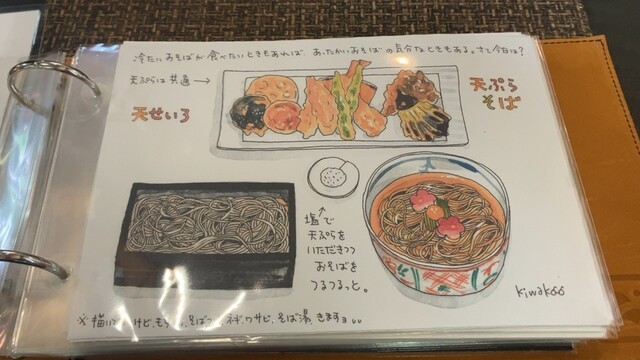 冷たいおそばが食べたいときもあれば、あったかいおそばの気分なときもある。さて今日は？
天ぷらは共通→
天せいろ
天ぷら
そば
塩で
天ぷらを
いただきつつ
おそばを
つるつるっと。
kiwakoo
※描い けど、もち そばつ ネギ、ワサビ、そば湯、きますョ